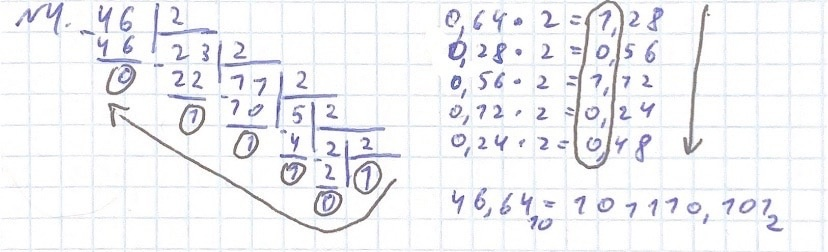 №4.
46 | 2
- 46 | 23 | 2
0 - 22 | 11 | 2
1 - 10 | 5 | 2
1 - 4 | 2 | 2
1 - 2 | 1
0
0,64 · 2 = 1,28
0,28 · 2 = 0,56
0,56 · 2 = 1,12
0,12 · 2 = 0,24
0,24 · 2 = 0,48
46,64₁₀ = 101110,101₂